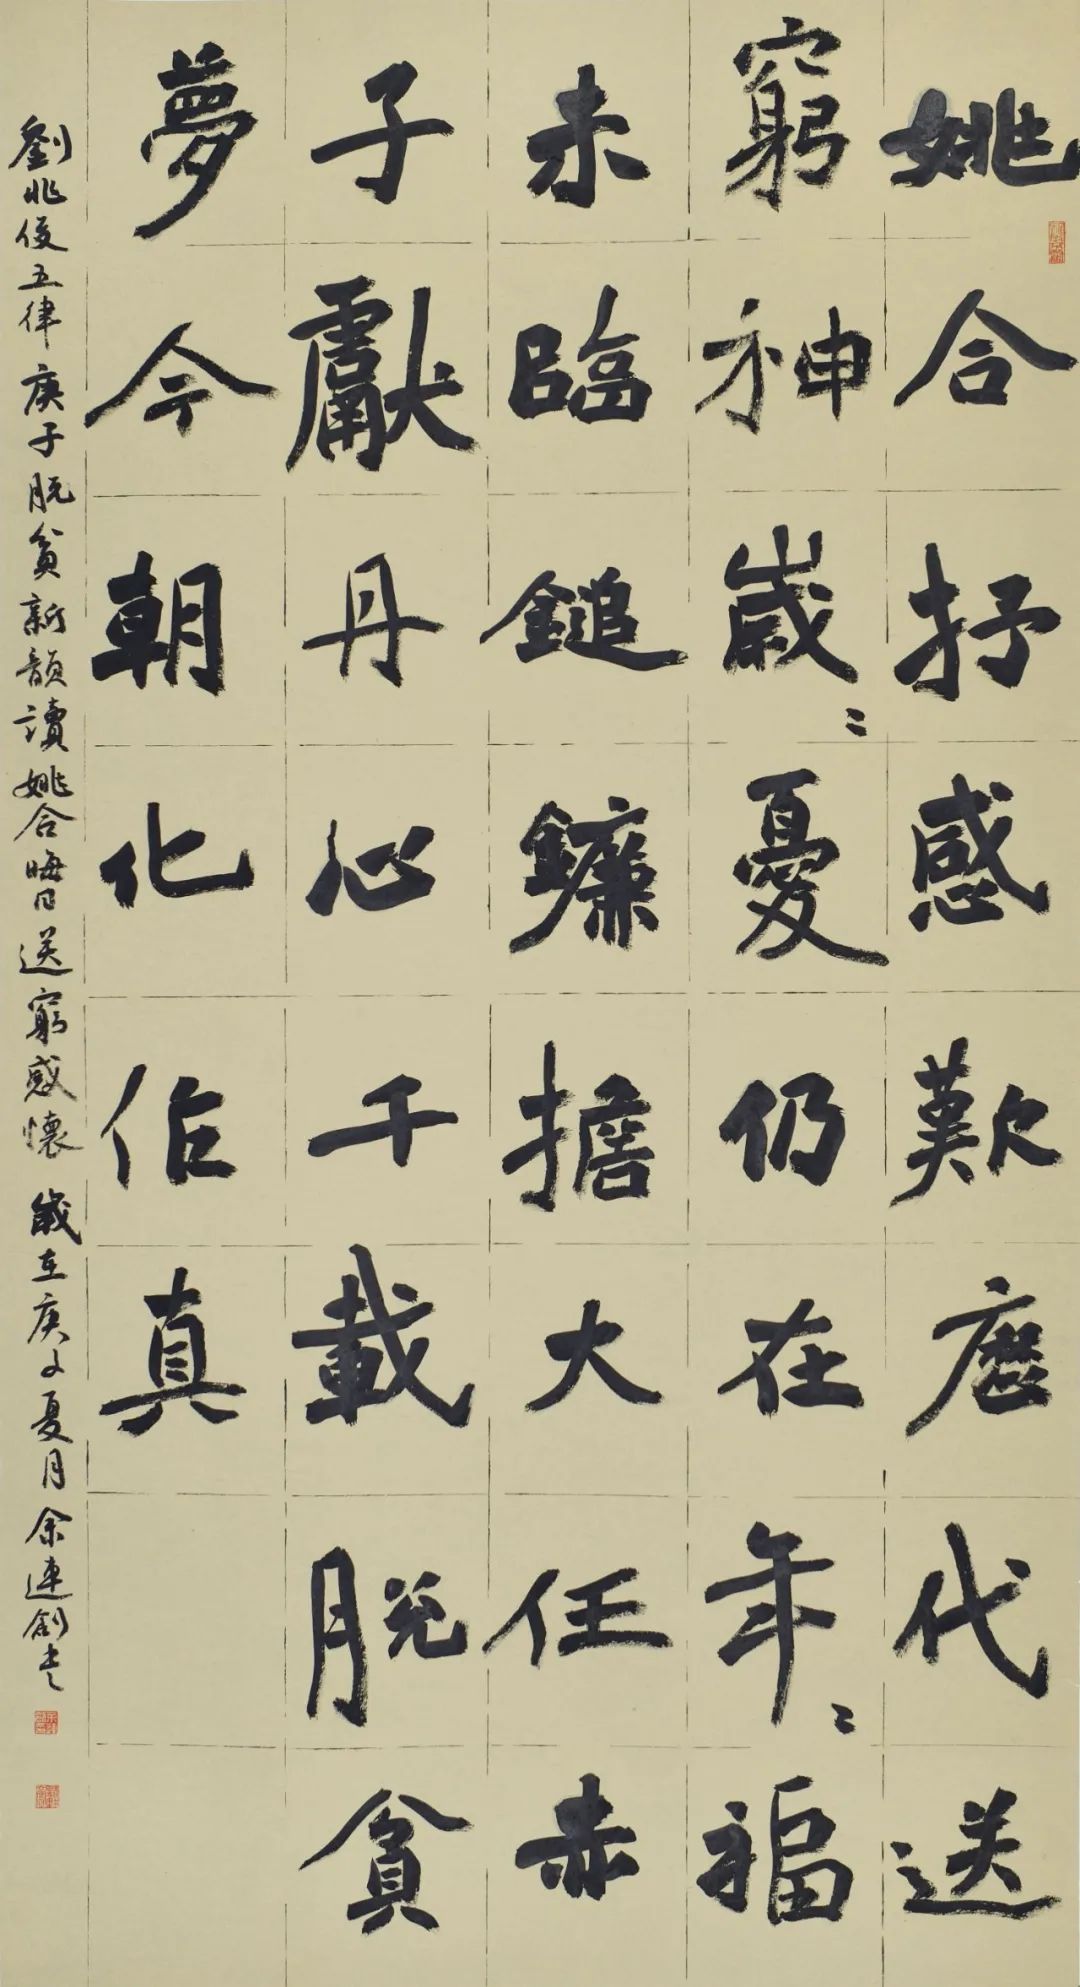 姚合抒感歎歷代送
窮神歲〻憂仍在年〻福
未臨鎚鐮擔大任赤
子獻丹心千載脫貧
夢今朝化作真
劉兆俊五律庚子脫貧新韻讀姚合晦日送窮感懷 歲在庚子夏月余連創書